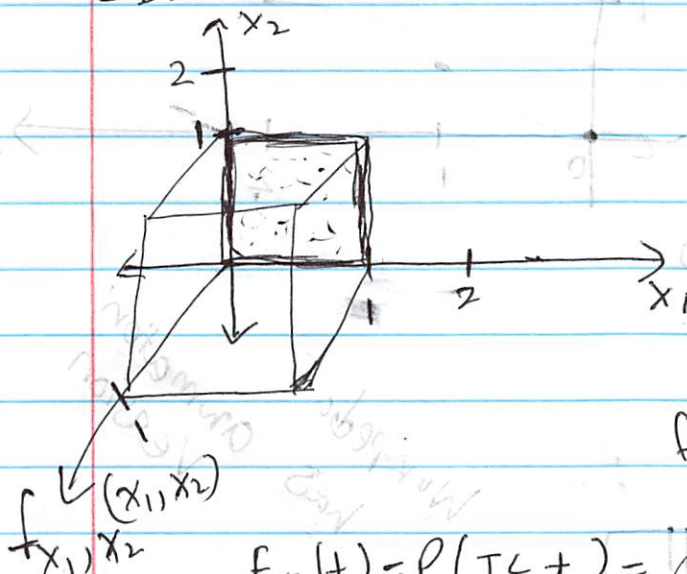 X2
2
1
1
2
X1
1
(X1, X2)
f X1, X2
f
(t) = P(T ≤ t) =